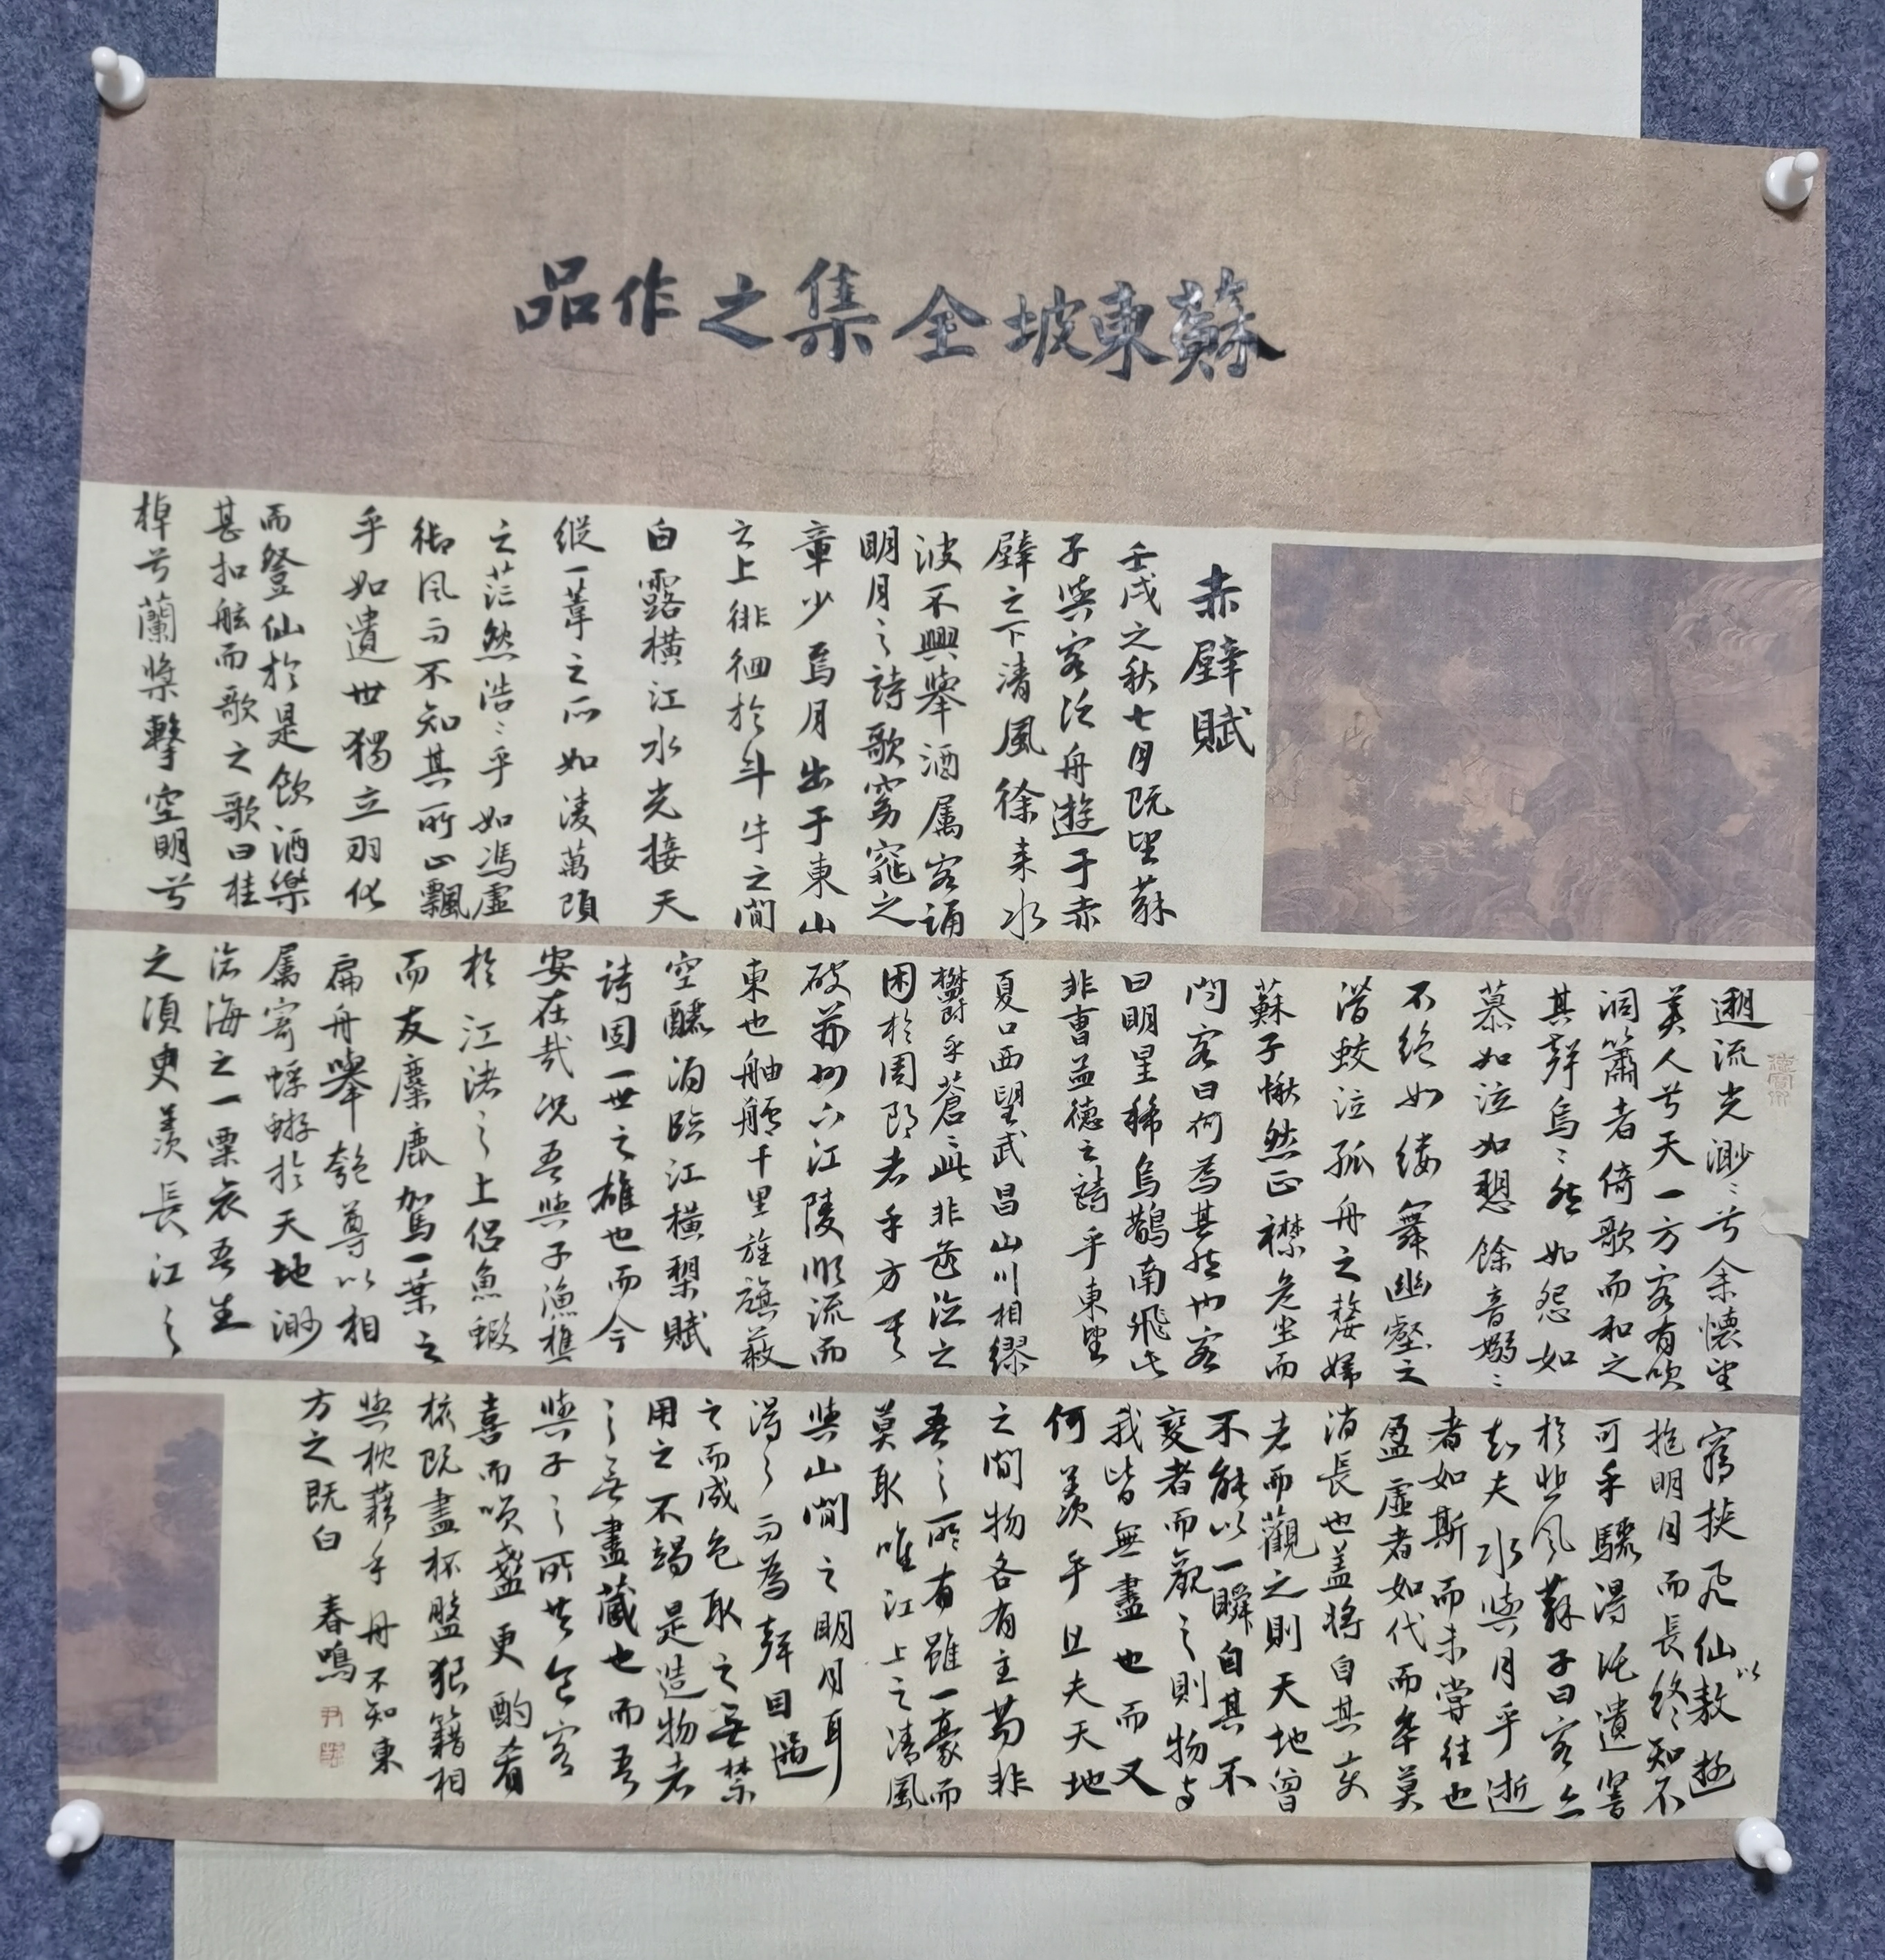 蘇東坡全集之作品
赤壁賦
壬戌之秋七月既望蘇
子與客泛舟遊于赤
壁之下清風徐來水
波不興舉酒属客誦
明月之詩歌窈窕之
章少焉月出于東山
之上徘徊於斗牛之間
白露橫江水光接天
縱一葦之所如凌萬頃
之茫然浩〻乎如馮虛
御風而不知其所止飄
乎如遺世獨立羽化
而登仙於是飲酒樂
甚扣舷而歌之歌曰桂
棹兮蘭槳擊空明兮
遡流光渺〻兮余懷望
美人兮天一方客有吹
洞簫者倚歌而和之
其聲烏〻然如怨如
慕如泣如愬餘音嫋〻
不絕如縷舞幽壑之
潛蛟泣孤舟之嫠婦
蘇子愀然正襟危坐而
問客曰何為其然也客
曰明星稀烏鵲南飛此
非曹益德之詩乎東望
夏口西望武昌山川相繆
鬱乎蒼〻此非孟德之
困於周郎者乎方其
破荊州下江陵順流而
東也舳艫千里旌旗蔽
空釃酒臨江橫槊賦
詩固一世之雄也而今
安在哉況吾與子漁樵
於江渚之上侶魚蝦
而友麋鹿駕一葉之
扁舟舉匏尊以相
属寄蜉蝣於天地渺
滄海之一粟哀吾生
之須臾羨長江之
窮挾飛仙以敖遊
抱明月而長終知不
可乎驟得託遺響
於悲風蘇子曰客亦
知夫水與月乎逝
者如斯而未嘗往也
盈虛者如代而卒莫
消長也盖將自其变
者而觀之則天地曾
不能以一瞬自其不
變者而觀之則物与
我皆無盡也而又
何羨乎且夫天地
之間物各有主苟非
吾之所有雖一豪而
莫取唯江上之清風
與山間之明月耳
得之而為聲目遇
之而成色取之無禁
用之不竭是造物者
之無盡藏也而吾
與子之所共食客
喜而咲盞更酌肴
核既盡杯盤狼籍相
與枕藉乎舟不知東
方之既白 春鳴